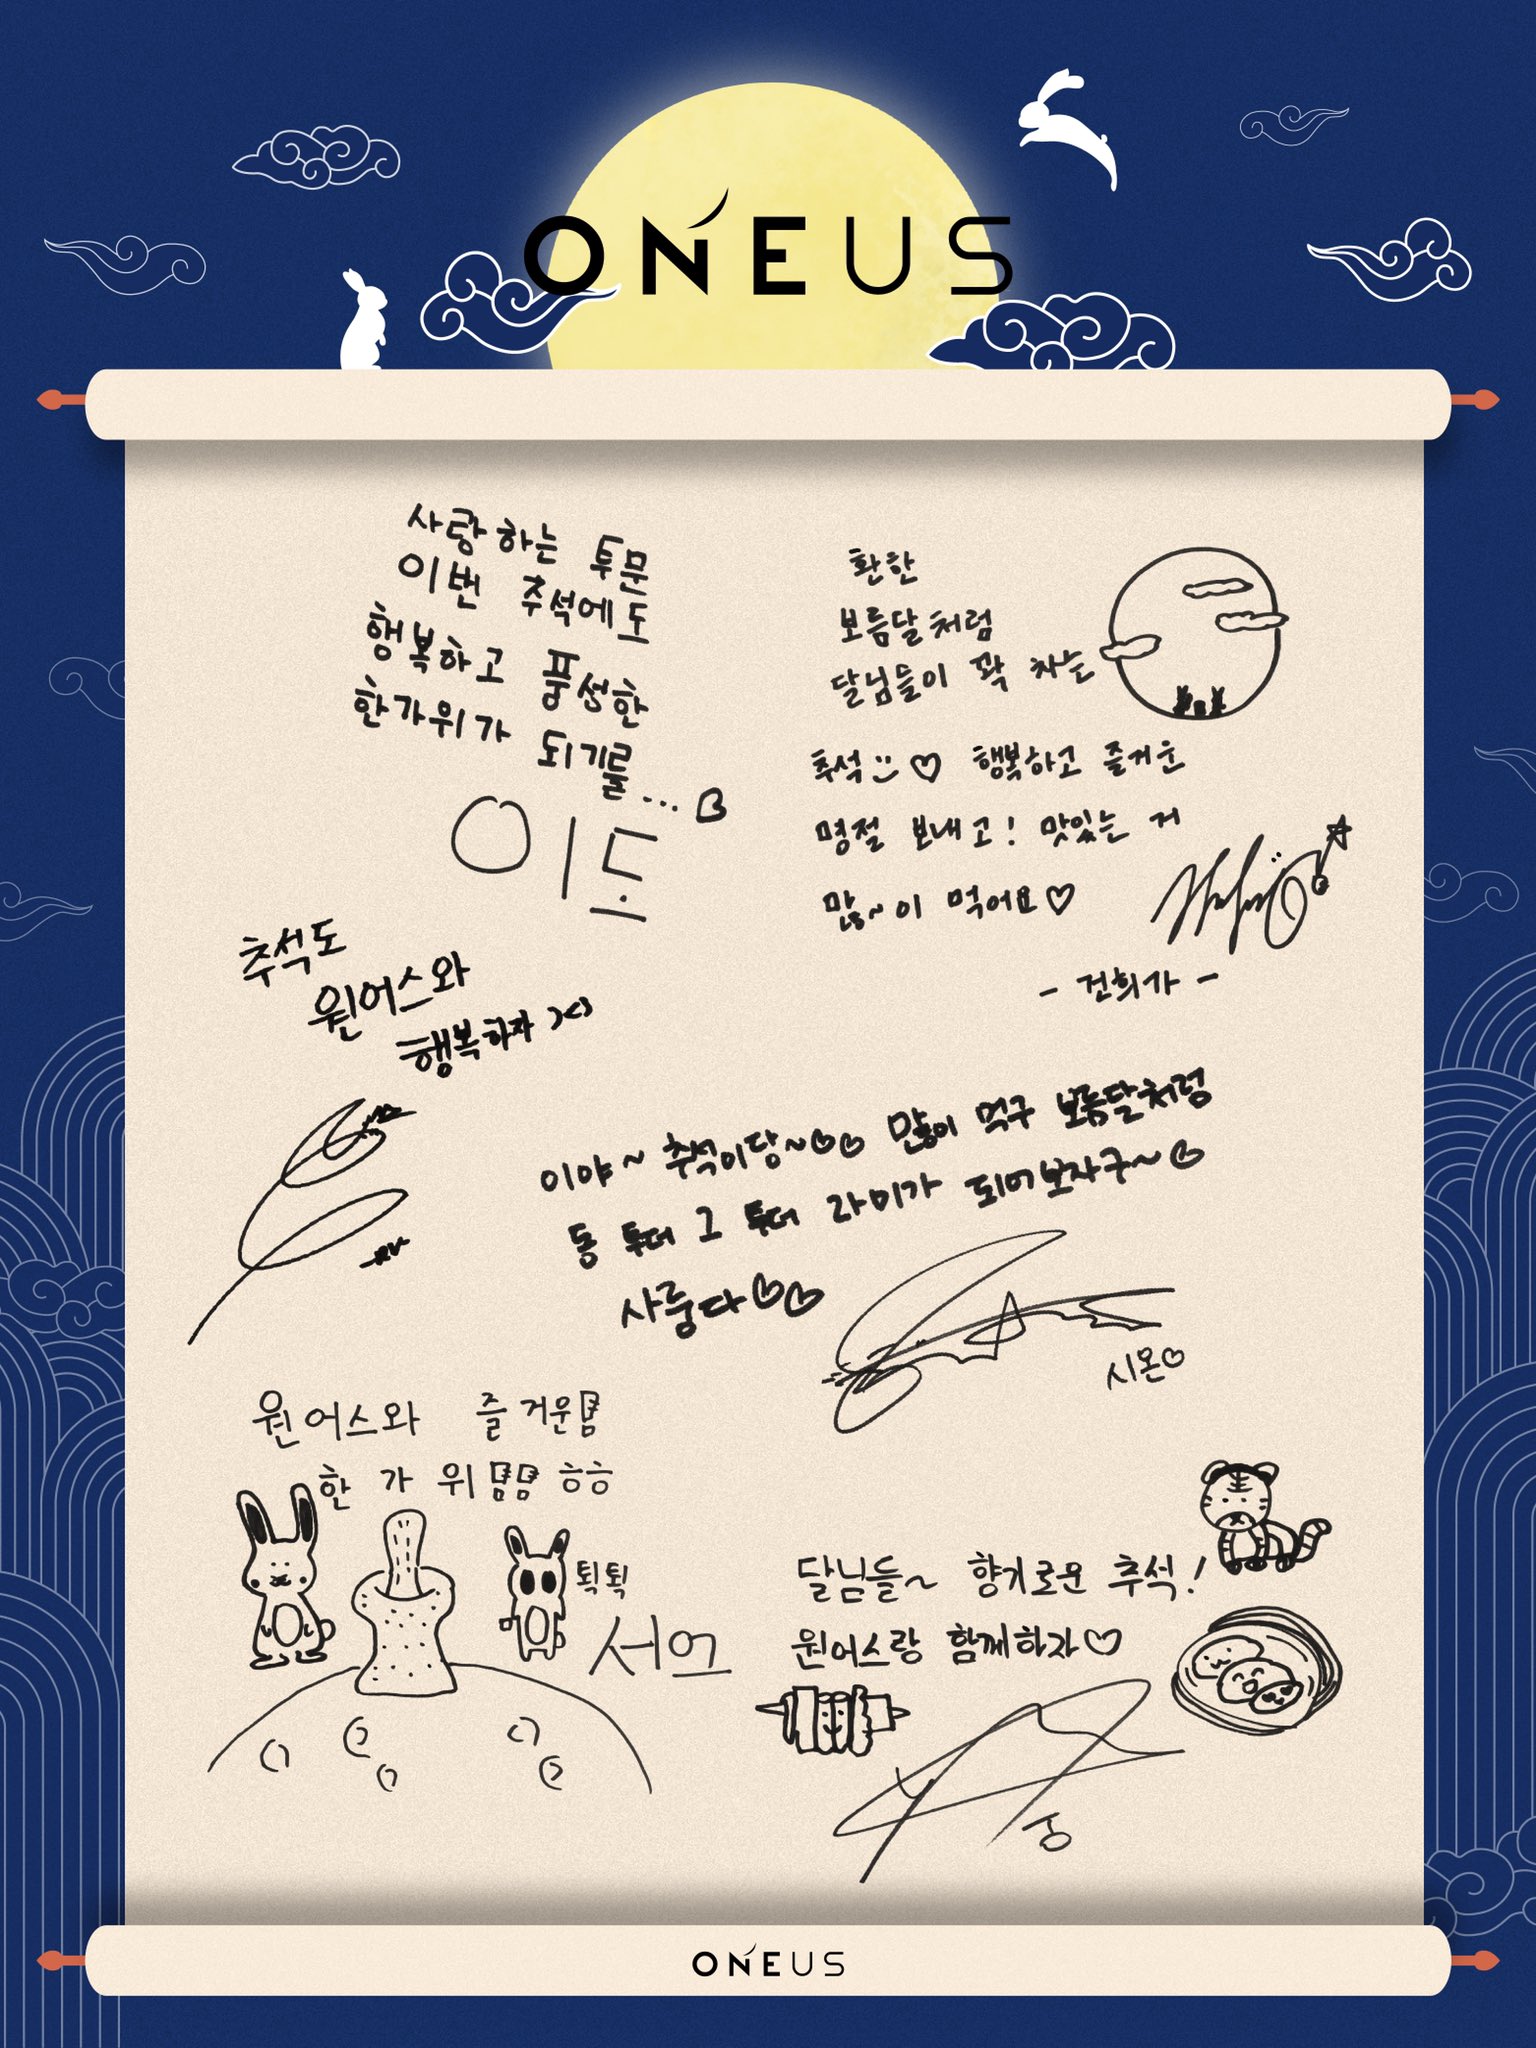 ONEUS
사랑하는 투문
이번 추석에도
행복하고 풍성한
한가위가 되기를...
이도
환한
보름달처럼
달님들이 꽉 차는
추석 행복하고 즐거운
명절 보내고! 맛있는 거
많~이 먹어요
- 건희가 -
추석도
원어스와
행복하자 ><
이야~ 추석이당~ 많이 먹구 보름달처럼
동 투더 그 투더 라미가 되어보자구~
사룽다
시온
원어스와 즐거운
한가위 ㅎㅎ
퇵퇵
서호
달님들~ 향기로운 추석!
원어스랑 함께하자
ONEUS